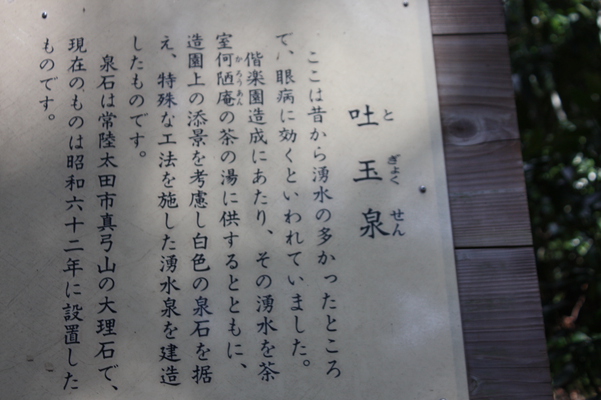 吐玉泉
とぎょくせん
ここは昔から湧水の多かったところ
で、眼病に効くといわれていました。
偕楽園造成にあたり、その湧水を茶
室何陋庵の茶の湯に供するとともに、
かろうあん
造園上の添景を考慮し白色の泉石を据
え、特殊な工法を施した湧水泉を建造
したものです。
泉石は常陸太田市真弓山の大理石で、
現在のものは昭和六十二年に設置した
ものです。